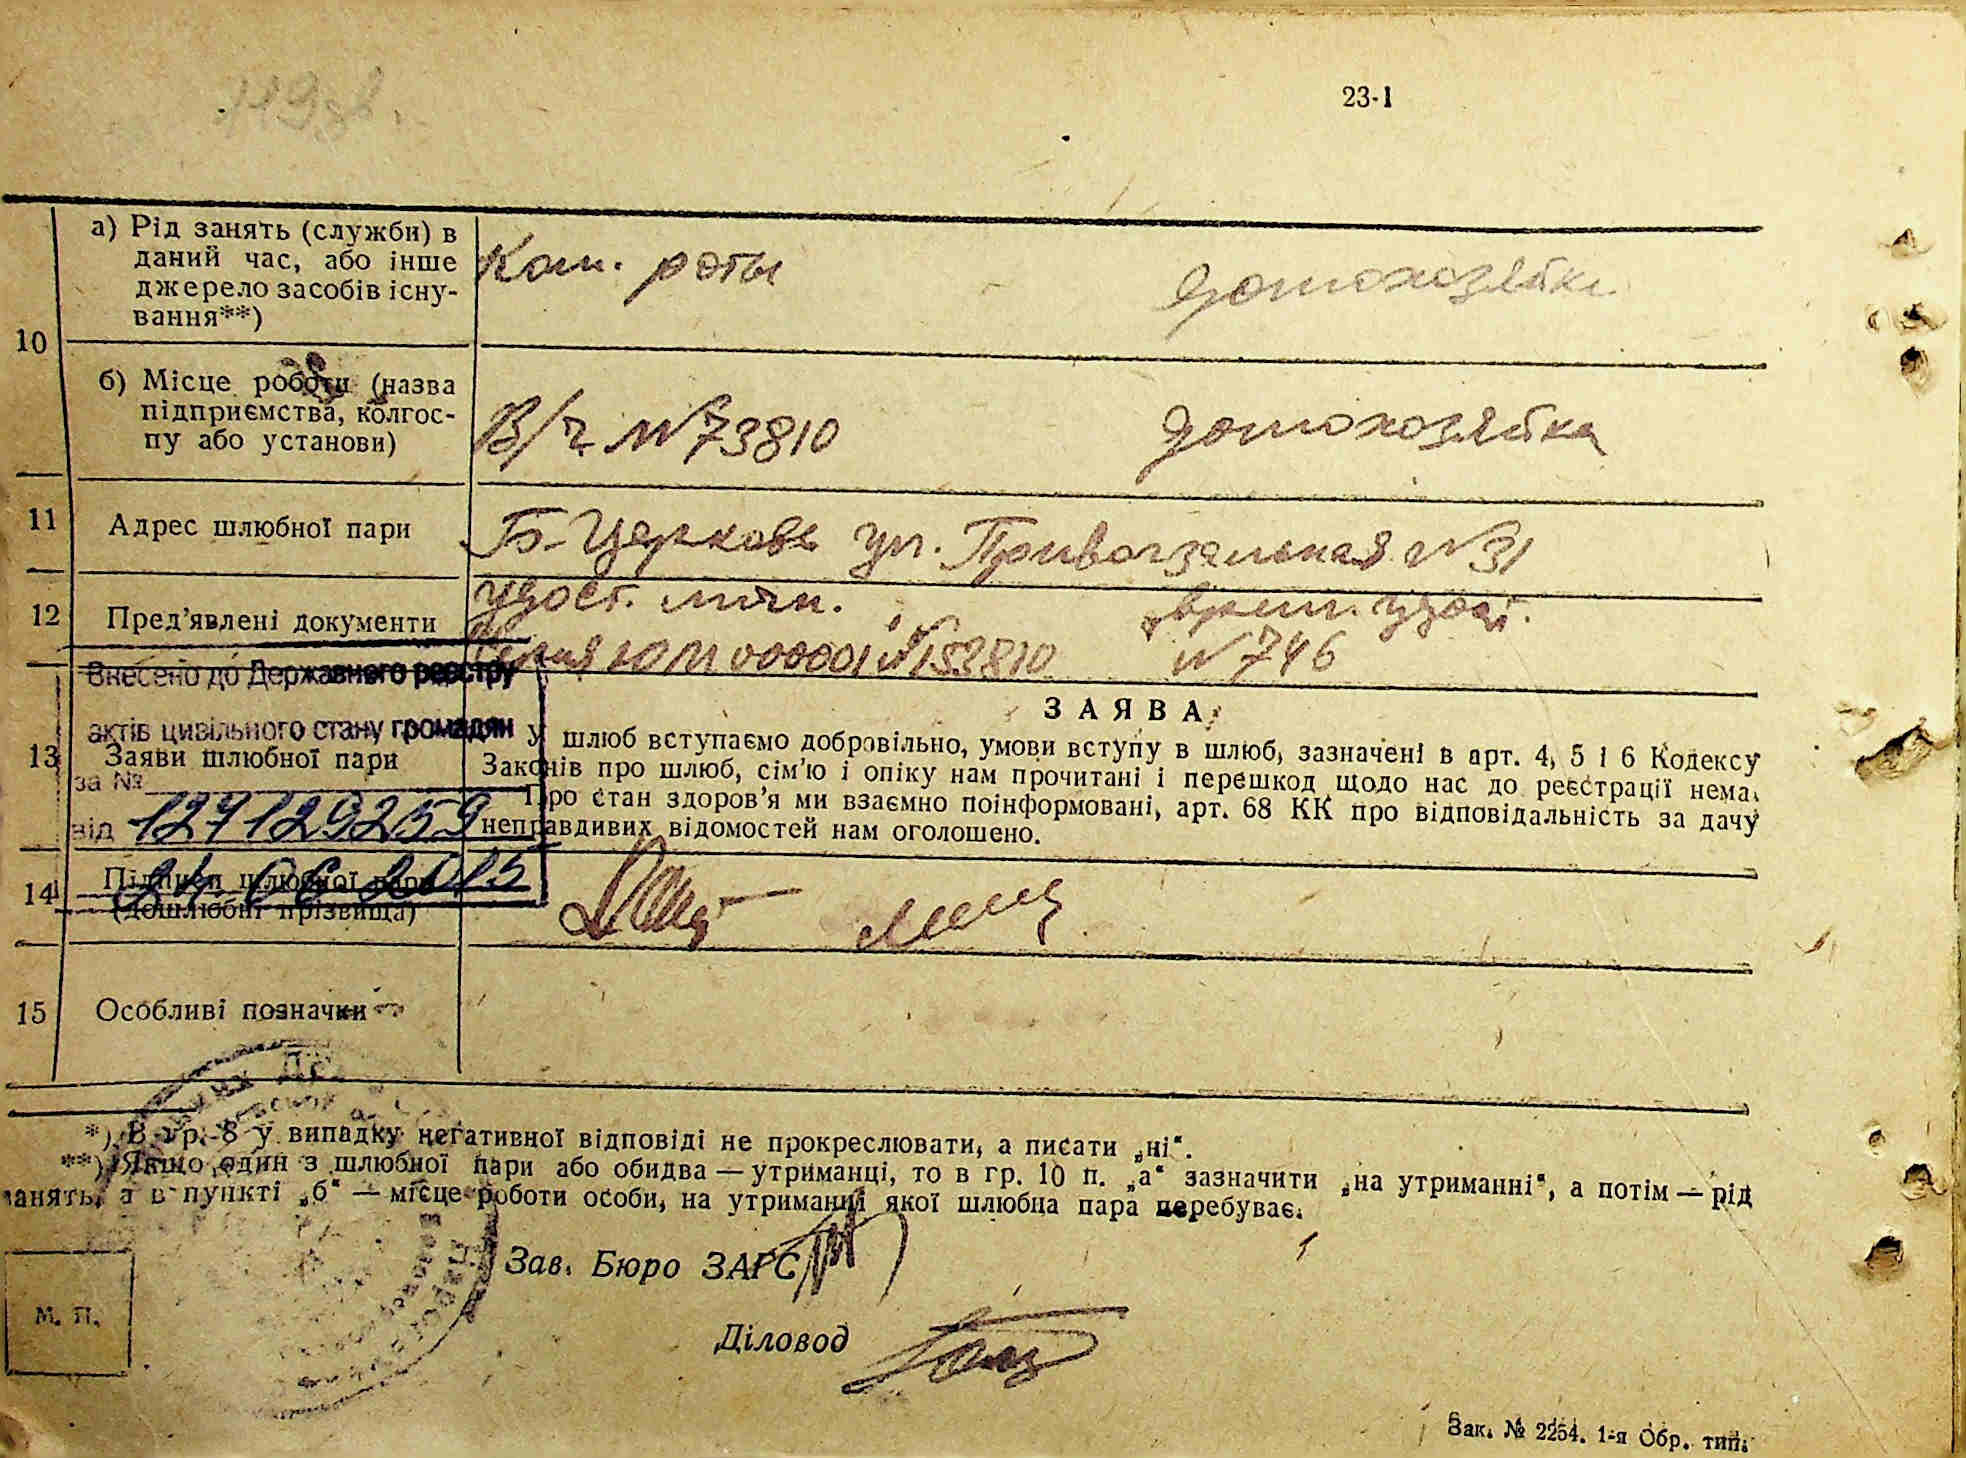 23-1
10
а) Рід занять (служби) в
даний час, або інше
джерело засобів існу-
вання**)
Ком. роты
домохозяйка
б) Місце роботи (назва
підприємства, колгос-
пу або установи)
В/ч №73810
домохозяйка
11
Адрес шлюбної пари
Б-Церковь ул. Привокзальная №31
12
Пред'явлені документи
удост. личн.
Серия ЮМ 000001 №153810
врем. удост.
№746
Внесено до Державного реєстру
актів цивільного стану громадян
за №
від 127129259
24.06.2015
13
Заяви шлюбної пари
ЗАЯВА
У шлюб вступаємо добровільно, умови вступу в шлюб, зазначені в арт. 4, 5 і 6 Кодексу
Законів про шлюб, сім'ю і опіку нам прочитані і перешкод щодо нас до реєстрації нема.
Про стан здоров'я ми взаємно поінформовані, арт. 68 КК про відповідальність за дачу
неправдивих відомостей нам оголошено.
14
Підписи шлюбної пари
(дошлюбні прізвища)
15
Особливі позначки
*) В гр. 8 у випадку негативної відповіді не прокреслювати, а писати „ні“.
**) Якщо один з шлюбної пари або обидва — утриманці, то в гр. 10 п. „а“ зазначити „на утриманні“, а потім — рід
занять, а в пункті „б“ — місце роботи особи, на утриманні якої шлюбна пара перебуває.
Зав. Бюро ЗАГС
М. П.
Діловод
Зак. № 2254. 1-я Обр. тип.